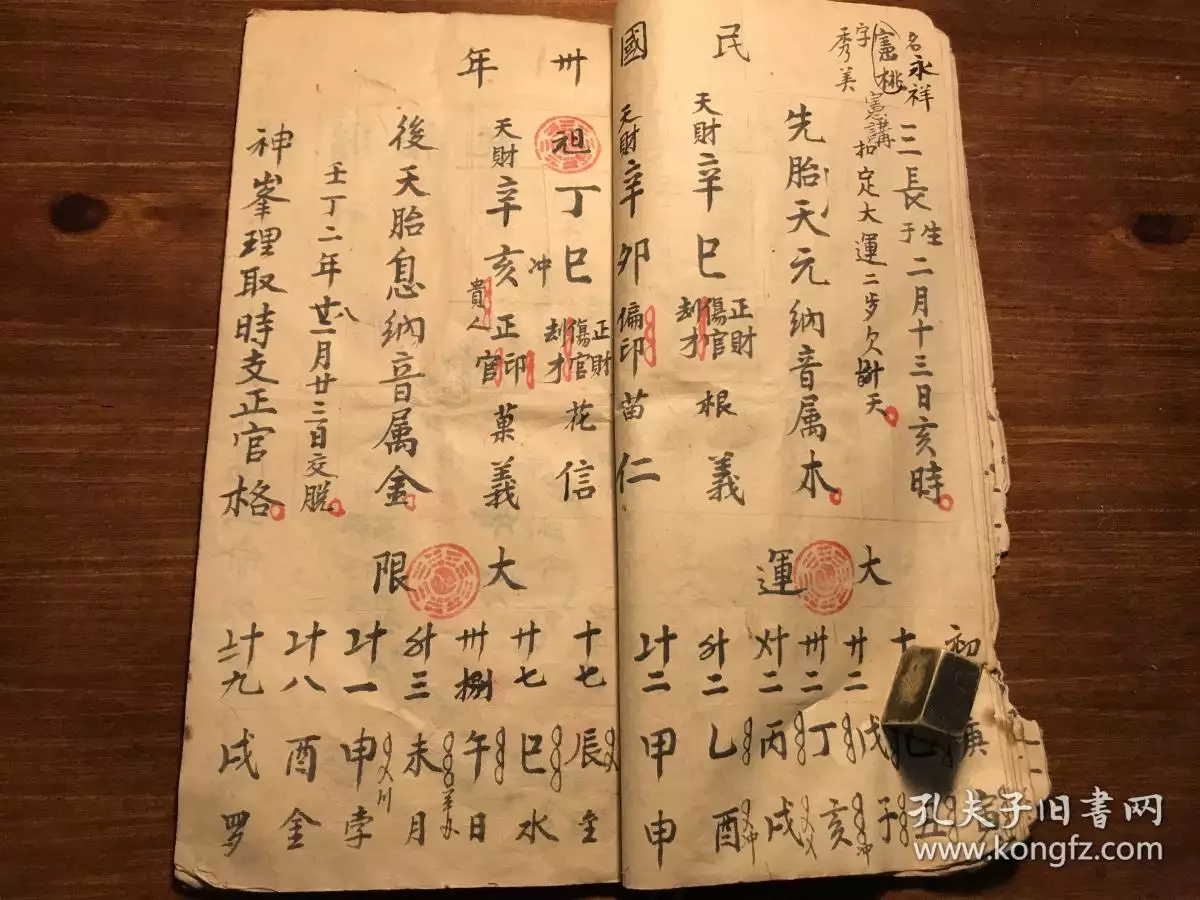 名永祥
憲桃
字秀美
憲講
三長生于二月十三日亥時
扣定大運二岁欠
天
先胎天元納音属木
民國卅年
天財辛巳
正財
傷官
刦才
根義
天財辛卯
偏印
苗仁
祖丁巳
冲
正財
傷官
刦才
花信
天財辛亥
貴人
正印
正官
菓義
後天胎息納音属金
壬丁二年
月廿三日交脫
神峯理取時支正官格
大運
初
庚
十
廿二
戊子
卅二
丁亥
〤十二
丙戌
〥十二
乙酉
〦十二
甲申
大限
十七
辰
廿七
巳水
卅捌
午日
〥十三
未月
〦十一
申孛
〦十八
酉金
九
戌罗
孔夫子旧书网
www.kongfz.com